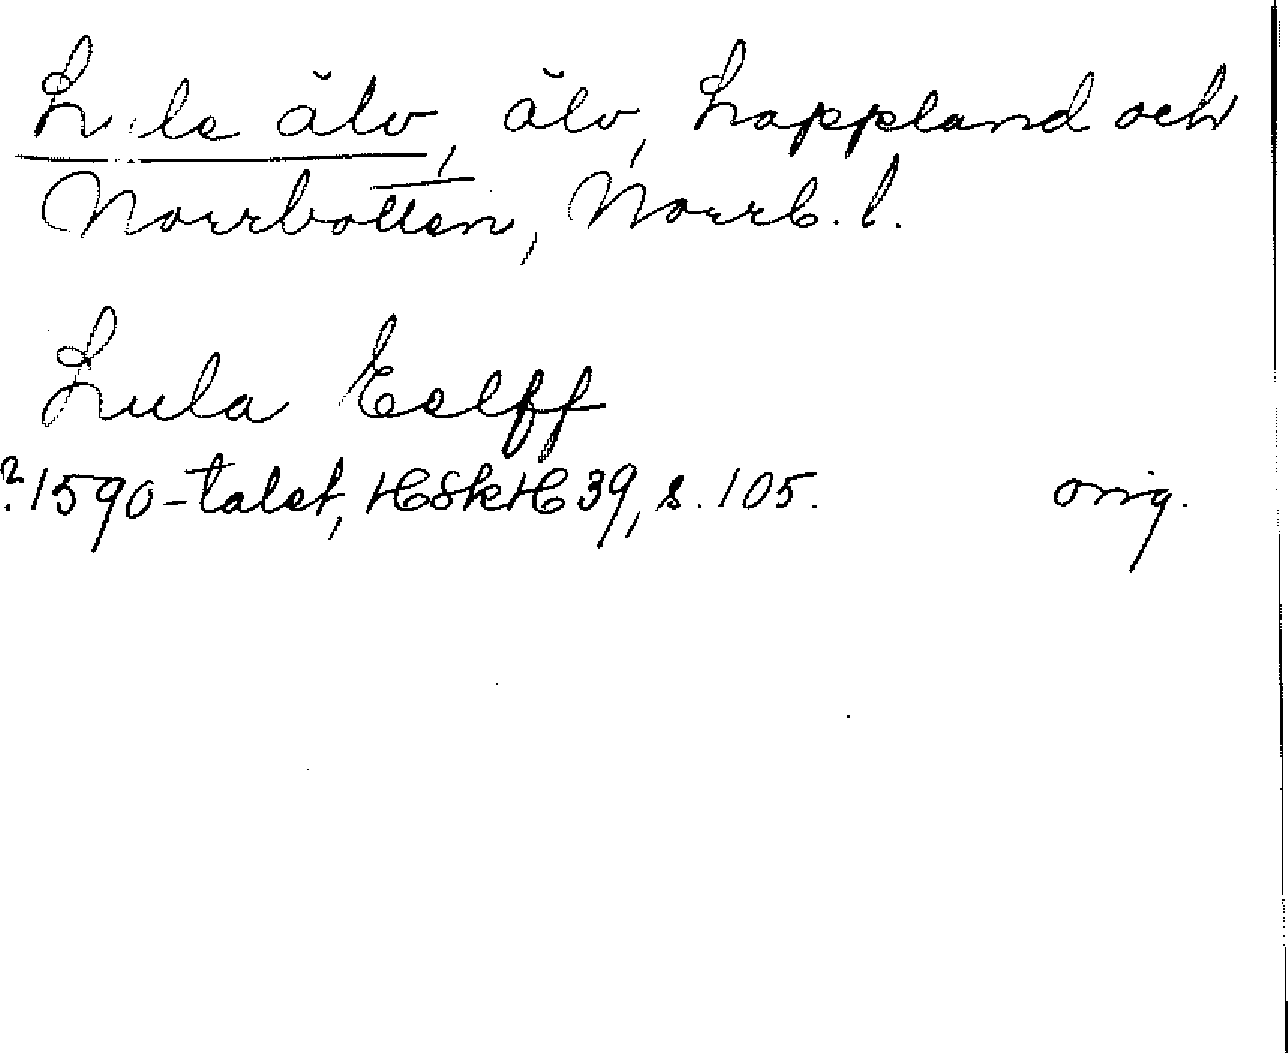 Lule älv, älv, Lappland och
Norrbotten, Norrb. l.
Lula Eelff
?1590-talet, HSkH 39, s. 105. orig.